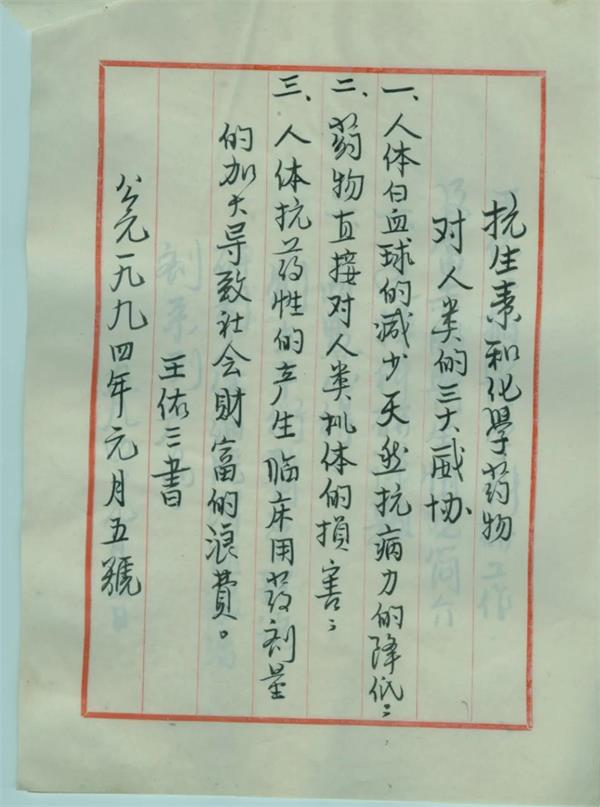 抗生素和化學药物
对人类的三大威协
一、人体白血球的减少天然抗病力的降低；
二、药物直接对人类机体的损害；
三、人体抗药性的产生临床用药剂量
的加大导致社会财富的浪費。
王佑三書
公元一九九四年元月五號